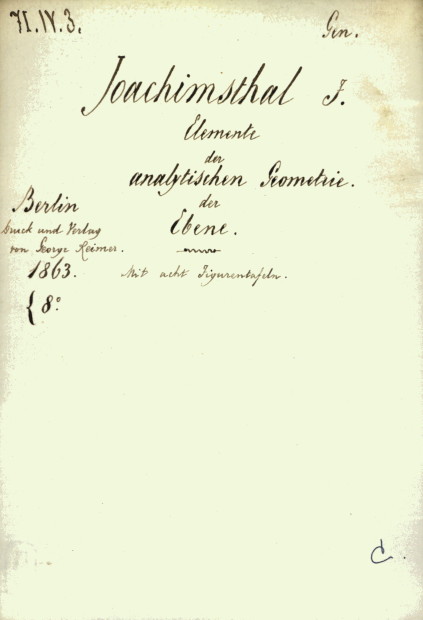 71.IV.3.
Gen.
Joachimsthal J.
Elemente
der
analytischen Geometrie.
der
Ebene.
Berlin
Druck und Verlag
von George Reimer.
1863.
Mit acht Figurentafeln.
{ 8°